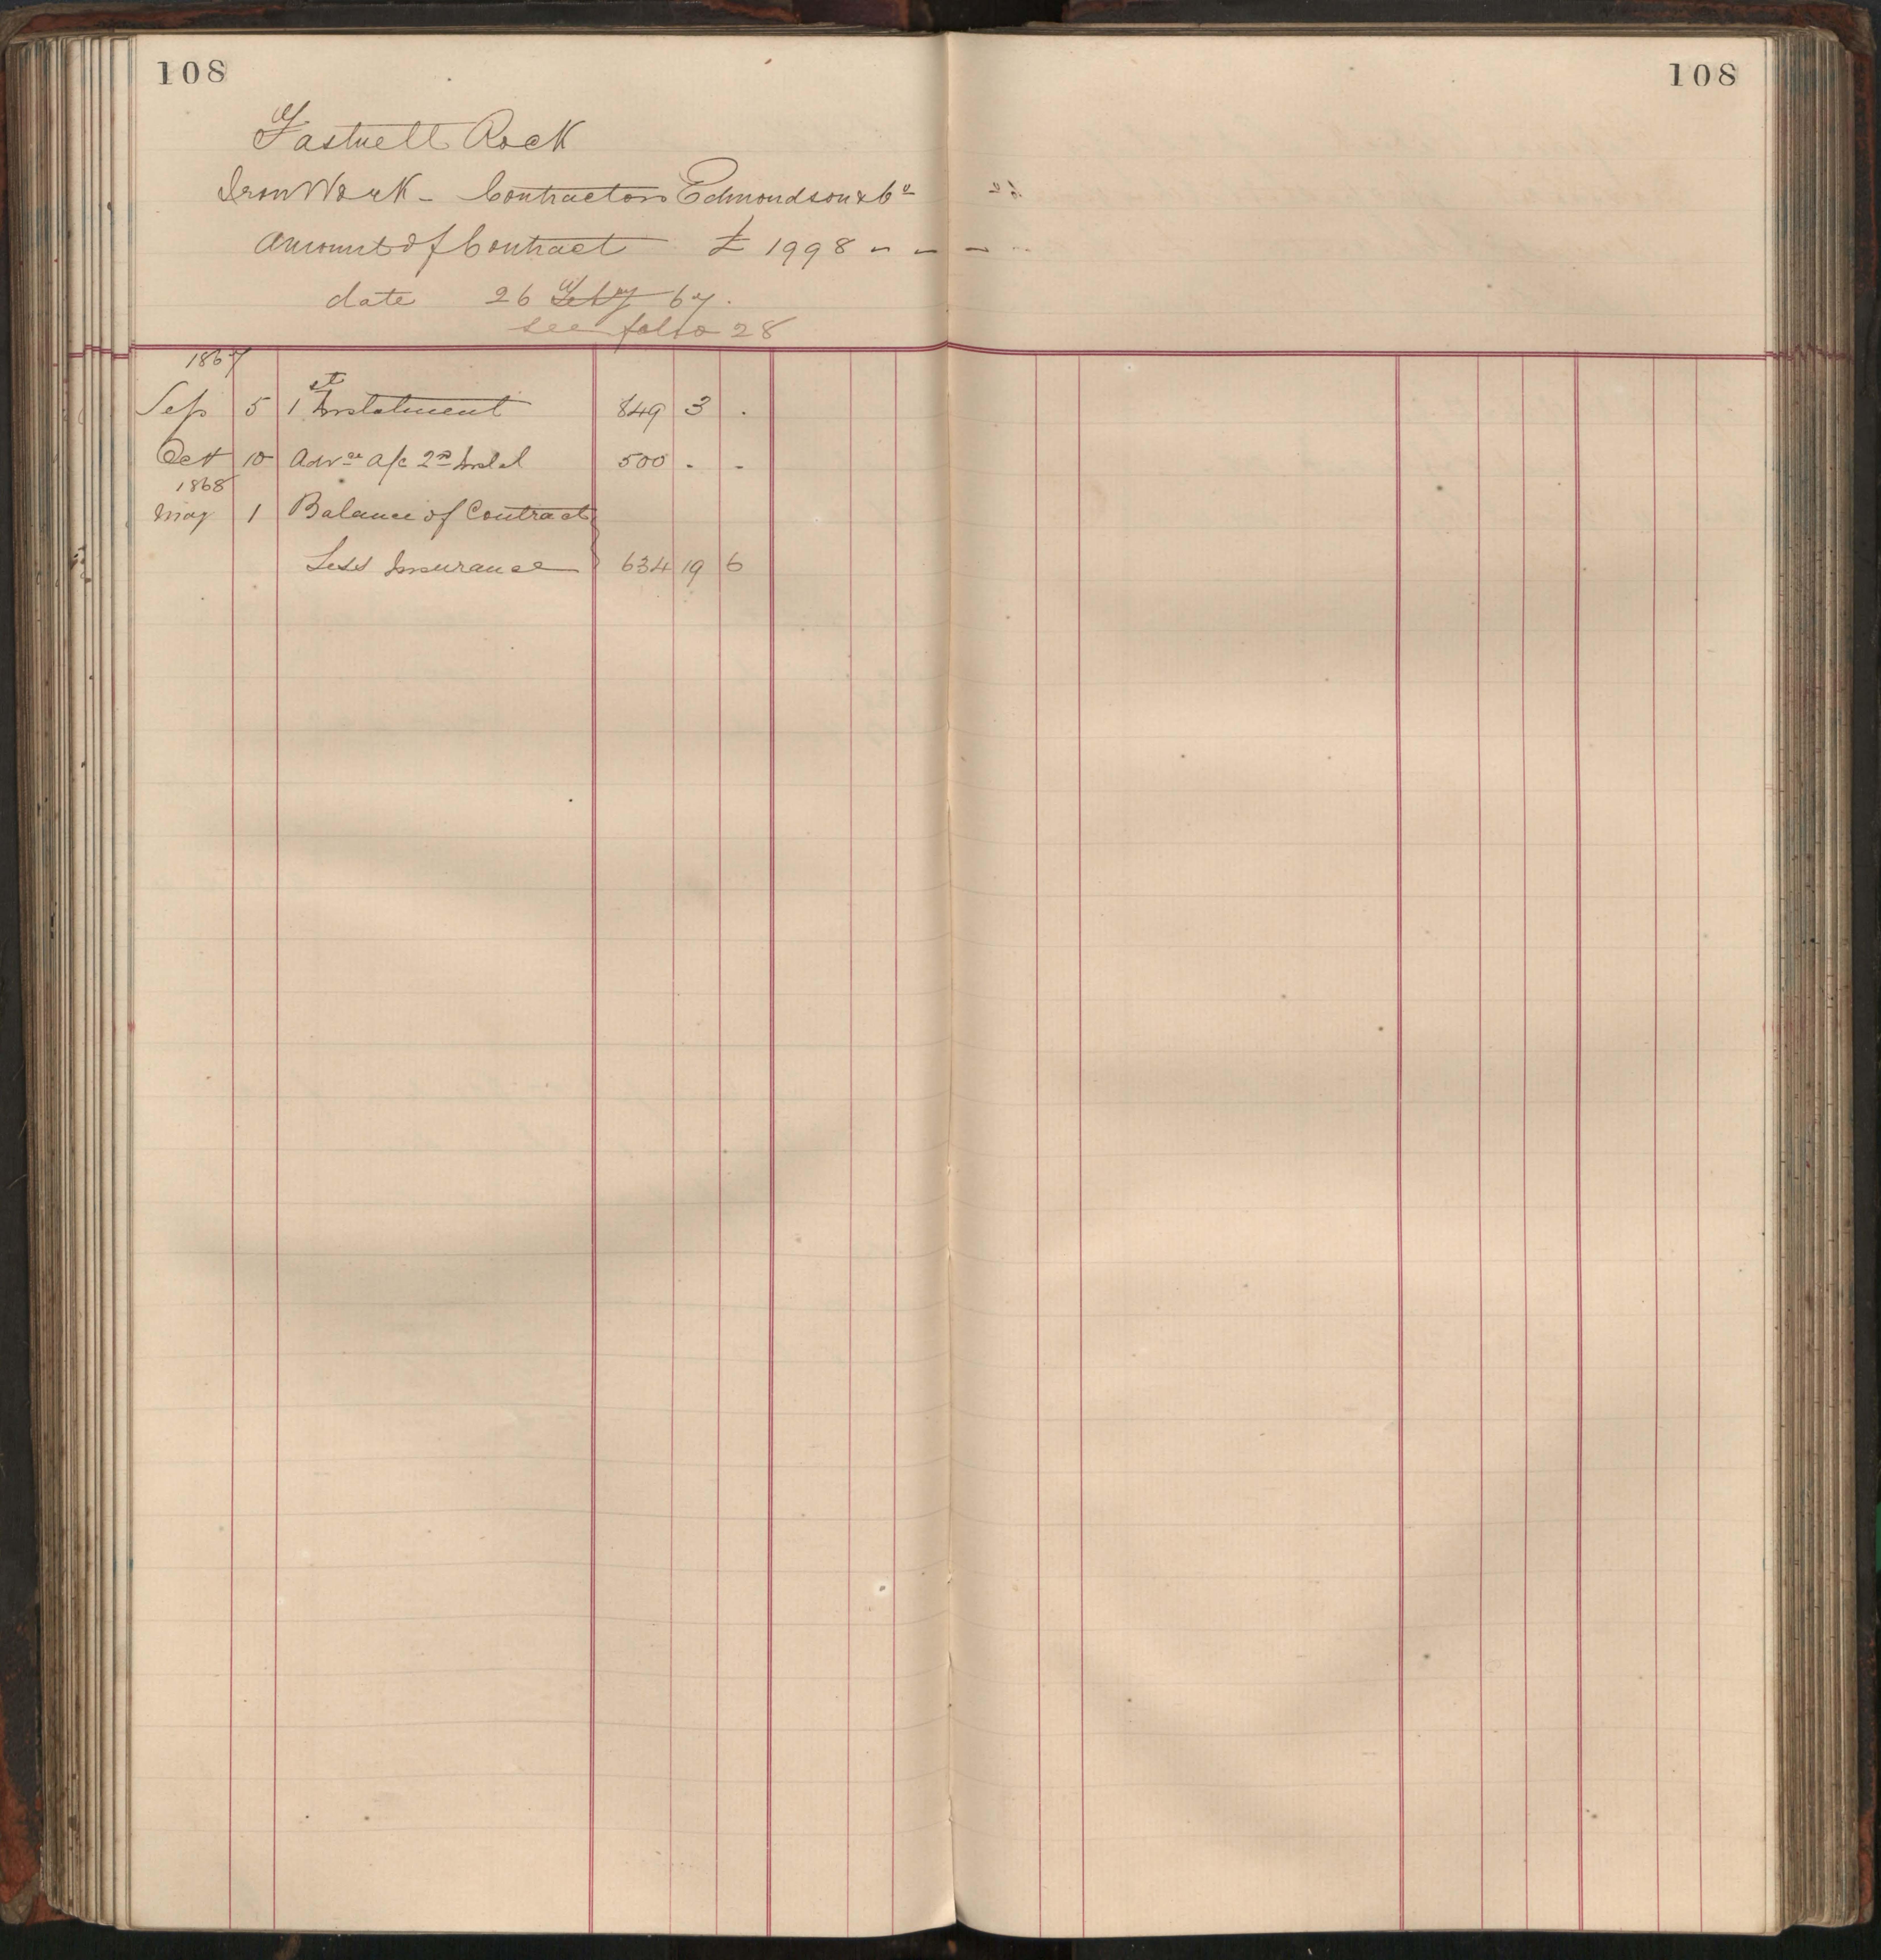 108
108
Fastnett Rock
Iron Work - Contractors Edmondson & Co
Amount of Contract £ 1998 - -
date 26 Feby 67.
see folio 28
1867
Sep 5 1st Instalment 849 3 .
Oct 10 Advce a/c 2nd Instal 500 . -
1868
May 1 Balance of Contract
Less Insurance } 634 19 6